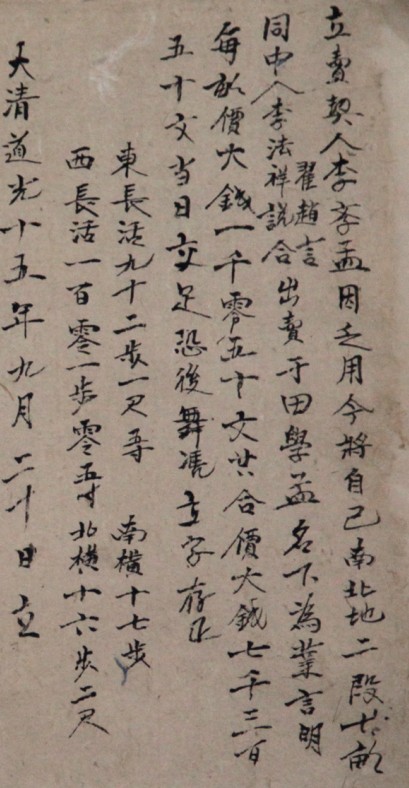 立賣契人李孝孟因乏用今將自己南北地二段廿畝
同中人李法祥翟趙言說合出賣于田學孟名下為業言明
每畝價大錢一千零五十文共合價大錢七千三百
五十文当日交足恐後舞凴立字存正
東長活九十二步一尺五寸 南橫十七步
西長活一百零一步零五寸 北橫十六步二尺
大清道光十五年九月二十日立